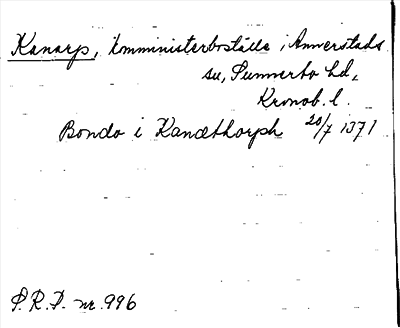 Kanarp, komministerboställe i Annerstads
sn, Sunnerbo hd,
Kronob. l.
Bondo i Kanæthorph 20/7 1371
P.R.P. nr. 996